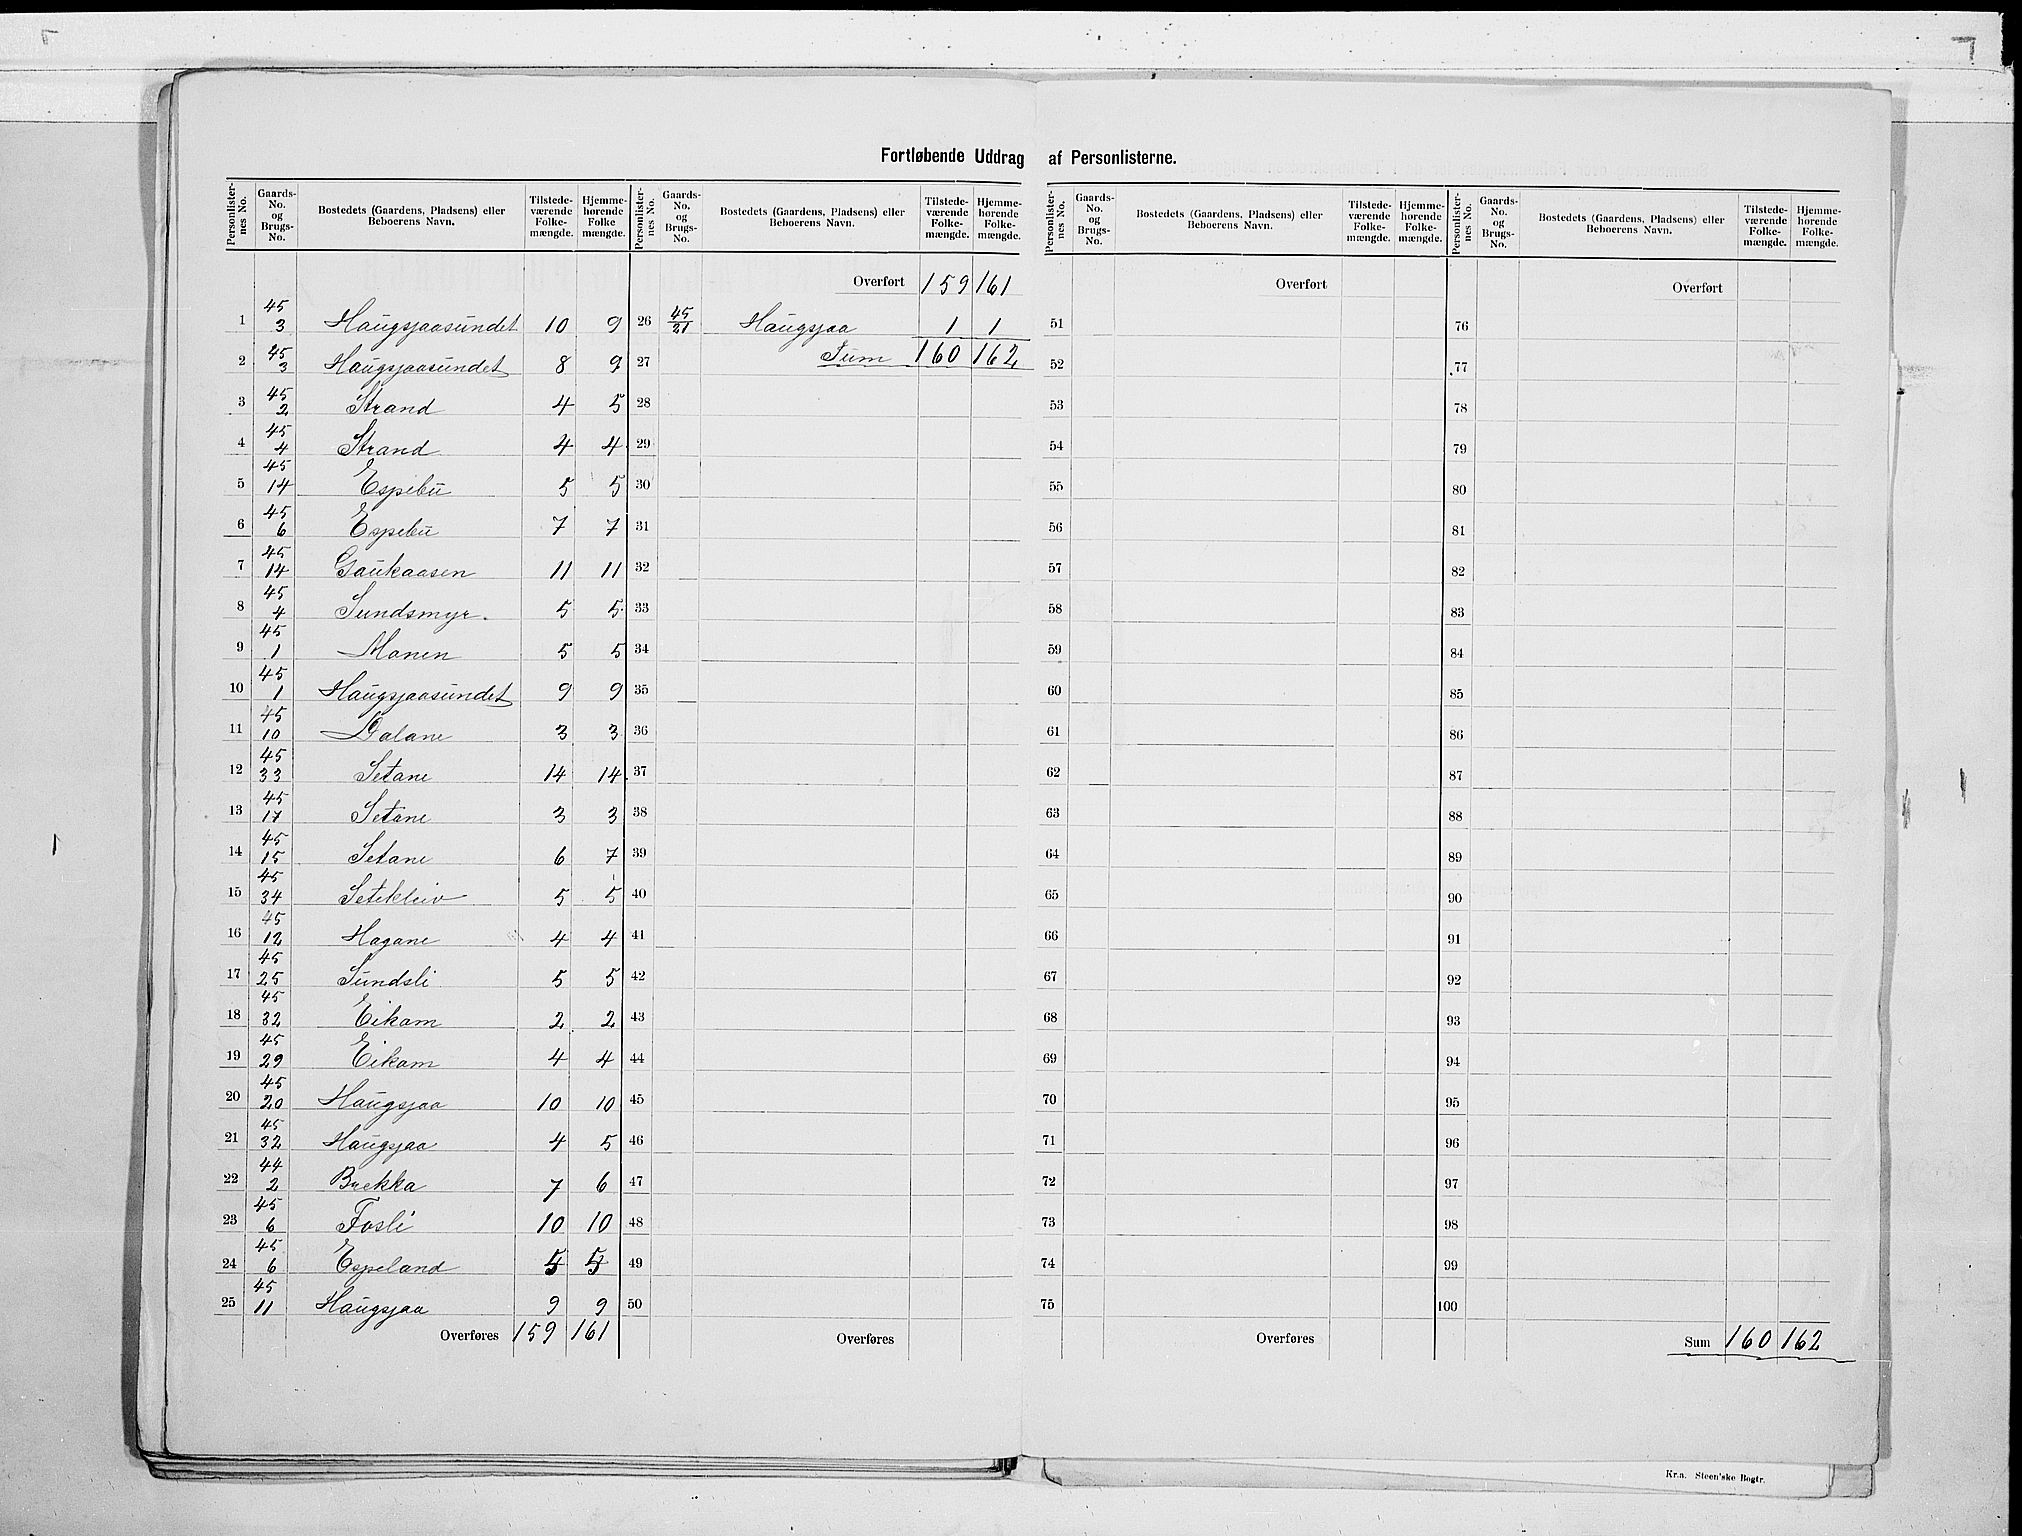 Fortløbende Uddrag af Personlisterne.
Personlister-nes No. | Gaards-No. og Brugs-No. | Bostedets (Gaardens, Pladsens) eller Beboerens Navn. | Tilstede-værende Folke-mængde. | Hjemme-hørende Folke-mængde.
1 45/3 Haugsjaasundet 10 9
2 45/3 Haugsjaasundet 8 9
3 45/2 Strand 4 5
4 45/4 Strand 4 4
5 45/14 Espibu 5 5
6 45/6 Espebu 7 7
7 45/14 Gaukaasen 11 11
8 45/4 Sundsmyr. 5 5
9 45/1 Monen 5 5
10 45/1 Haugsjaasundet 9 9
11 45/10 Dalane 3 3
12 45/33 Setane 14 14
13 45/17 Setane 3 3
14 45/15 Setane 6 7
15 45/34 Setekleiv 5 5
16 45/12 Hagane 4 4
17 45/25 Sundsli 5 5
18 45/32 Eikom 2 2
19 45/29 Eikom 4 4
20 45/20 Haugsjaa 10 10
21 45/32 Haugsjaa 4 5
22 44/2 Brekka 7 6
23 45/6 Fosli 10 10
24 45/6 Espeland 5 5
25 45/11 Haugsjaa 9 9
Overføres 159 161
Personlister-nes No. | Gaards-No. og Brugs-No. | Bostedets (Gaardens, Pladsens) eller Beboerens Navn. | Tilstede-værende Folke-mængde. | Hjemme-hørende Folke-mængde.
Overført 159 161
26 45/21 Haugsjaa 1 1
27 Sum 160 162
28
29
30
31
32
33
34
35
36
37
38
39
40
41
42
43
44
45
46
47
48
49
50
Overføres
Personlister-nes No. | Gaards-No. og Brugs-No. | Bostedets (Gaardens, Pladsens) eller Beboerens Navn. | Tilstede-værende Folke-mængde. | Hjemme-hørende Folke-mængde.
Overført
51
52
53
54
55
56
57
58
59
60
61
62
63
64
65
66
67
68
69
70
71
72
73
74
75
Overføres
Personlister-nes No. | Gaards-No. og Brugs-No. | Bostedets (Gaardens, Pladsens) eller Beboerens Navn. | Tilstede-værende Folke-mængde. | Hjemme-hørende Folke-mængde.
Overført
76
77
78
79
80
81
82
83
84
85
86
87
88
89
90
91
92
93
94
95
96
97
98
99
100
Sum 160 162
Kr.a. Steen'ske Bogtr.